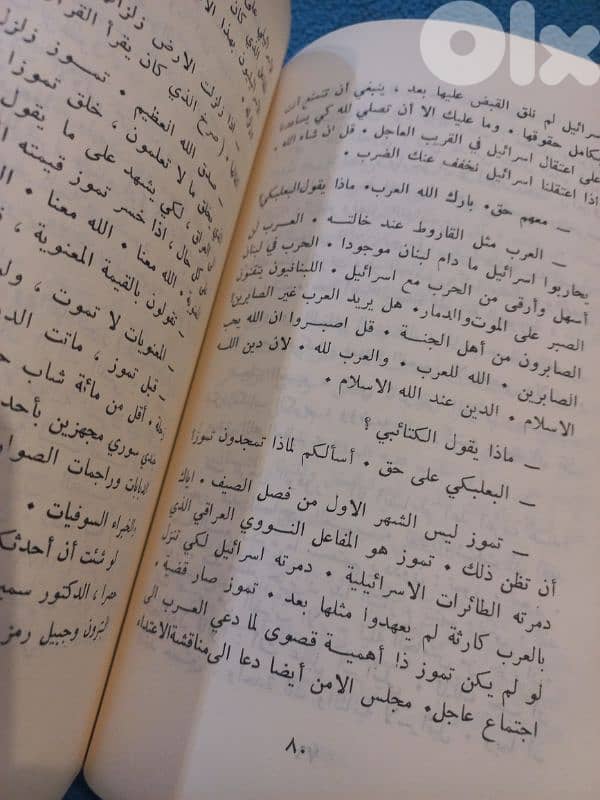 OLX
اسرائيل لم نلق القبض عليها بعد ، ينبغي أن تتمتع
بكامل حقوقها • وما عليك الا أن تصلي لله كي يساعدنا
على اعتقال اسرائيل في القريب العاجل • قل ان شاء الله •
اذا اعتقلنا اسرائيل نخفف عنك الضرب •
ــ معهم حق • بارك الله العرب • ماذا يقول البعلبكي؟
ــ العرب مثل القاروط عند خالتــه • العــرب لن
يحاربوا اسرائيل ما دام لبنان موجودا • الحرب في لبنان
أسهل وأرقى من الحرب مع اسرائيل • اللبنانيون يتقنون
الصبر على الموت والدمار • هل يريد العرب غير الصابرين؟
الصابرون من أهل الجنــة • قل اصبــروا ان الله يحب
الصابرين • الله للعرب • والعرب لله • لان دين اللــه
الاسلام • الدين عند الله الاسلام •
ــ ماذا يقول الكتائبي ؟
ــ البعلبكي على حق • أسألكم لماذا تمجدون تموز؟
ــ تموز ليس الشهر الاول من فصل الصيف • اياك
أن تظن ذلك • تموز هو المفاعل النــووي العراقي الذي
دمرته الطائرات الاسرائيلية • دمرته اسرائيل لكي تنزل
بالعرب كارثة لم يعهدوا مثلها بعد • تموز صار قضية •
لو لم يكن تموز ذا أهميــة قصوى لما دعي العــرب الى
اجتماع عاجل • مجلس الامن أيضا دعا الى مناقشة الاعتداء
٨٠
اذا زلزلت الارض زلزا
( صرخ الذي كان يقرأ القر
ــ صدق الله العظيم • تمــوز زلز
ما لا تعلمون ، خلق تموزا
، لكي يشهد على ما يقول
حال ، اذا خسر تموز قيمته ا
الله معنا • الله معنا • ا
تقولون بالقيمة المعنوية ،
المعنويات لا تموت ، ول
ــ قبل تموز ، ماتت الد
أقل من مائة شاب
سوري مجهزين بأحد
الدبابات وراجمات الصوا
بالخبراء السوفيات •
لو شئت أن أحدثك
، الدكتور سمي
وجبيل رمز